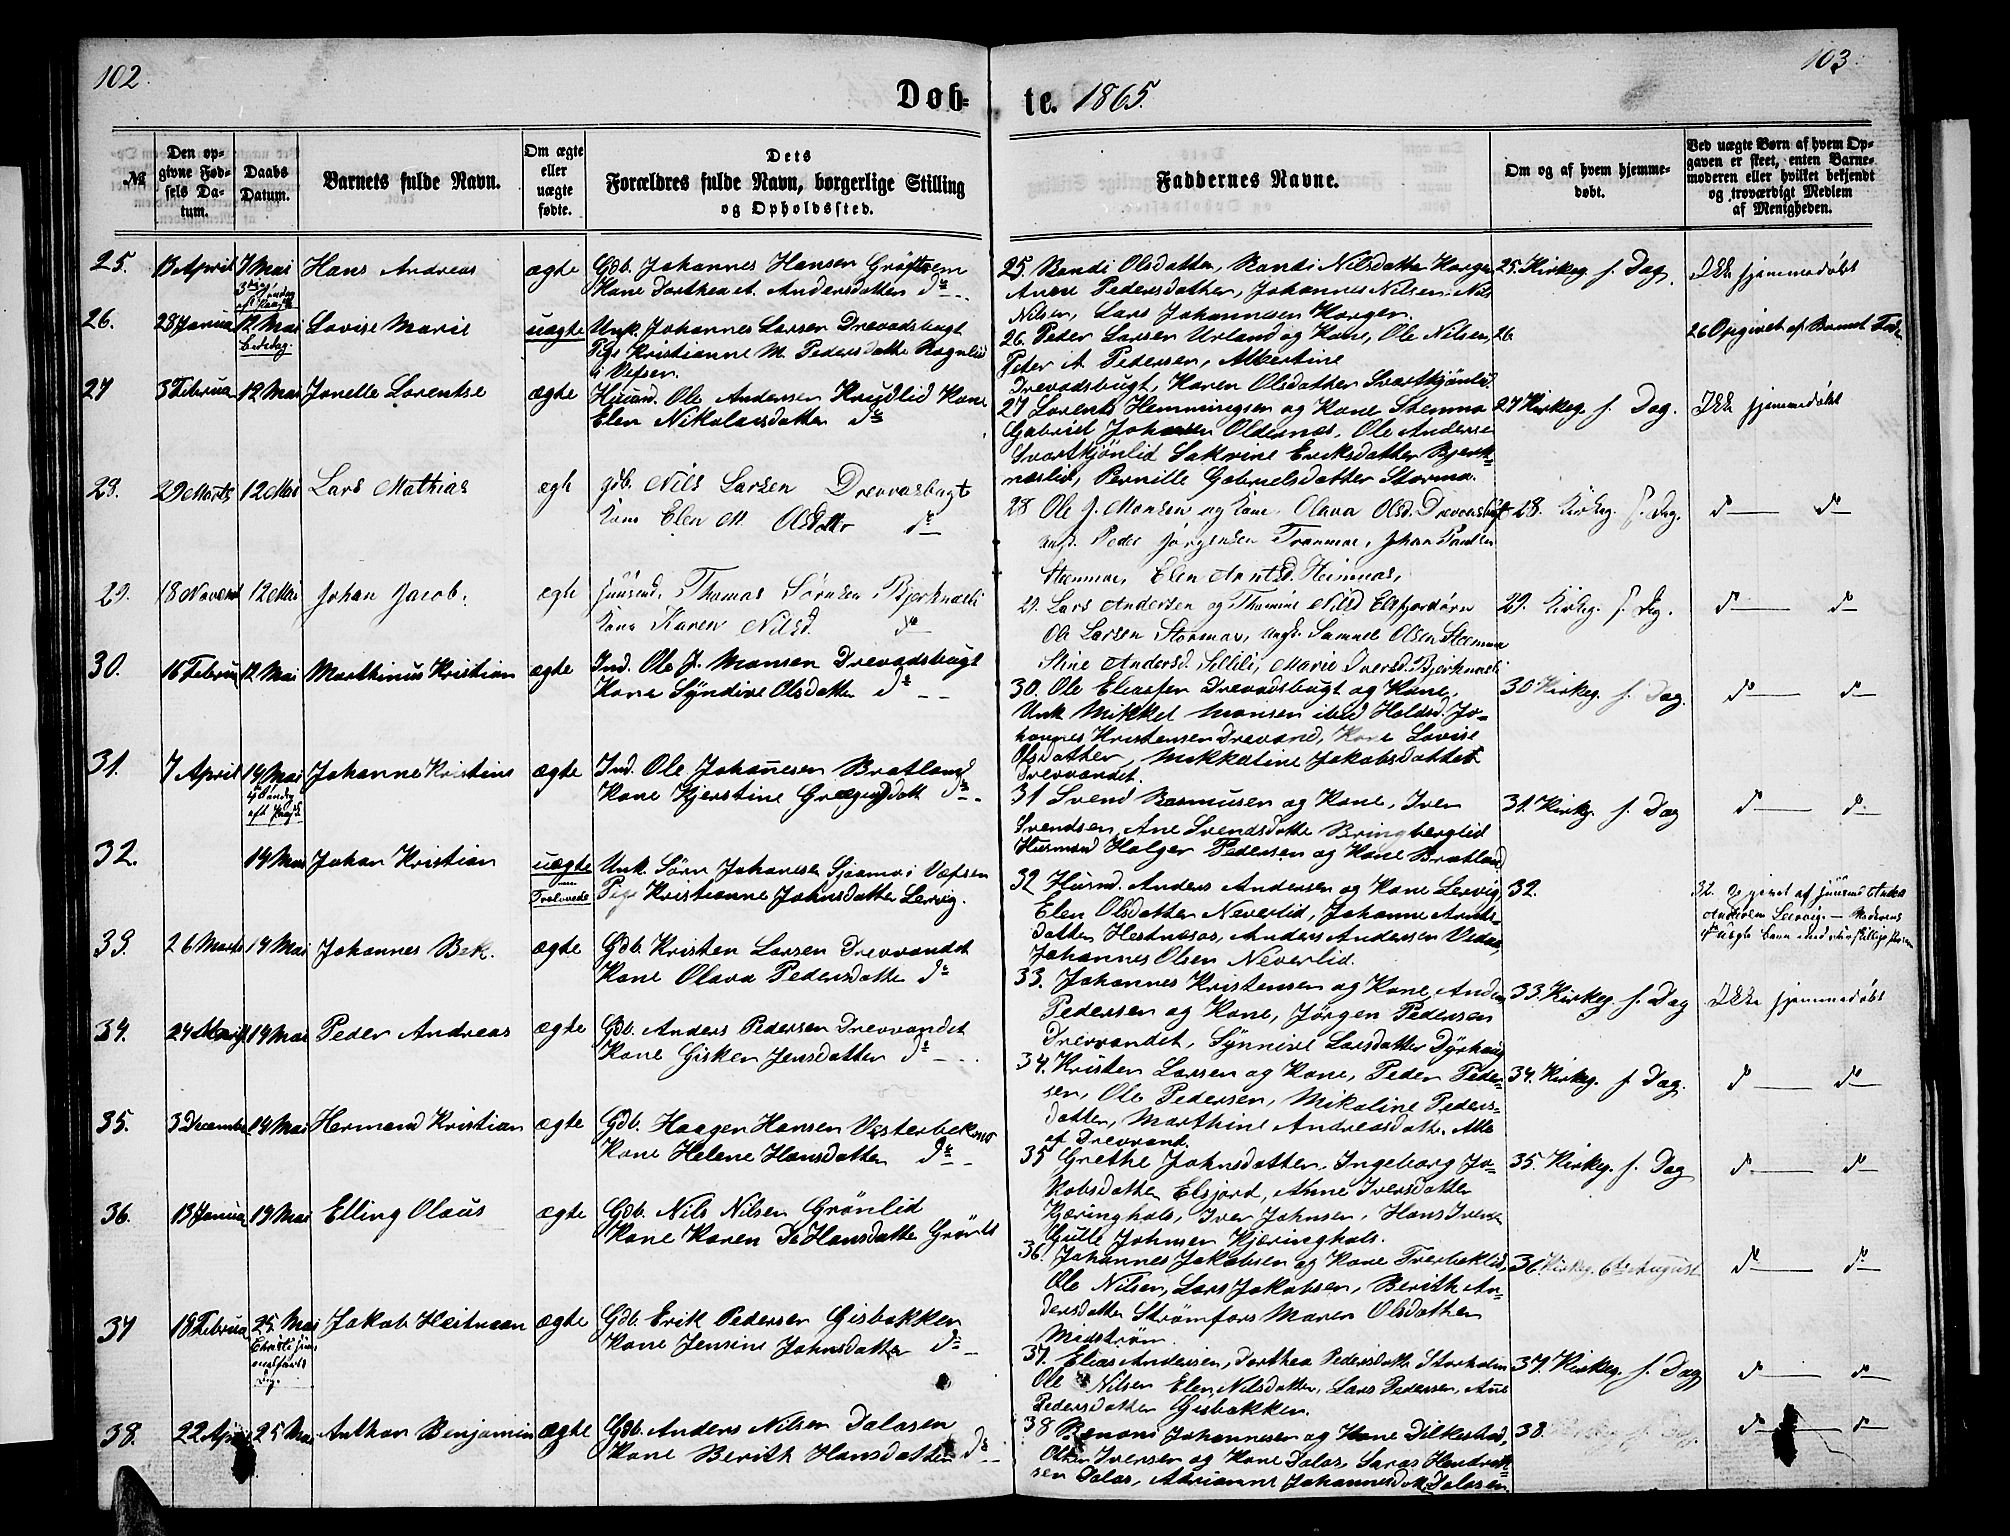 102.
103.
Døb-
te. 1865.
№
Den op-
givne Fød-
sels Da-
tum.
Daabs
Datum.
Barnets fulde Navn.
Om ægte
eller
uægte
fødte.
Dets
Forældres fulde Navn, borgerlige Stilling
og Opholdssted.
Faddernes Navne.
Om og af hvem hjemme-
døbt.
Ved uægte Børn af hvem Op-
gaven er skeet, enten Barne-
moderen eller hvilket bekjendt
og troværdigt Medlem
af Menigheden.
25. 13 April 7 Mai Hans Andreas ægte Gdb. Johannes Hansen Grøftrem
Kone Dorthea A. Andersdatter do
25. Randi Olsdatter, Randi Nilsdatter Horgen
Anne Pedersdatter, Johannes Nilsen, Nils
Nilsen, Lars Johannesen Horgen.
25. Kirkeg. s. Dag. Ikke hjemmedøbt
26. 28 Janua 12 Mai Lovise Marie uægte Unk. Johannes Larsen Drevadsbugt
Bededag.
Pige Kristianne M. Pedersdatter
i Vefsen.
26. Peder Larsen Urland og Kone, Ole Nilsen,
Peter A Pedersen, Albertine
Drevadsbugt, Karen Olsdatter Svartkjønlid.
26
26 Opgivet af Barnets Fader
27 3 Februa 12 Mai Jonette Lorentse ægte Huusmd. Ole Andersen Kruglid Kone
Elen Nikolaisdatter do
27 Lorents Hemmingsen og Kone Stenmo
Gabriel Johansen Oldernes, Ole Anderse
Svartkjønlid Sakrine Eriksdatter Bjerk-
næslid, Pernille Gabrielsdatter Stormo.
27 Kirkeg. s. Dag. Ikke hjemmedøbt
28. 29 Marts 12 Mai Lars Mathias ægte gdb. Nils Larsen Drevvasbugt
Kone Elen M. Olsdatter do
28 Ole J. Monsen og Kone, Olava Olsd. Drevvasbugt
ungk. Peder Jørgensen Tranmoe, Johan Paulsen
Steenmoe, Elen Arntsd.
28. Kirkeg. s. Dag. do do
29. 18 Novemb 12 Mai Johan Jacob. ægte huusmd. Thomas Sørnsen Bjerknæsli
Kone Karen Nilsd. do
29. Lars Andersen og Thomine Nilsd Elsfjordøren
Ole Larsen Stormoe, ungk. Samuel Olsen Steenmoe
Stine Andersd. Sellili, Marie Iversd. Bjerknæsli
29. Kirkeg. s. Dag. do do
30. 16 Februa 12 Mai Marthinus Kristian ægte Ind. Ole J. Monsen Drevadsbugt
Kone Syndive Olsdatter do
30. Ole Eliassen Drevadsbugt og Kone,
Unk Mikkel Monsen ibid Holdsd. Jo-
hannes Kristensen Drevand, Kone Lovise
Olsdatter, Mikkaline Jakobsdatter
Drevvandet.
30 Kirkeg. s. Dag. do do
31. 7 April 14 Mai Johanne Kristine ægte Ind. Ole Johannesen Bratland
Kone Kjerstine Gregersdatt do
31 Svend Rasmusen og Kone, Iver
Svendsen, Ane Svendsdatte Bringbærglid
Husmand Holger Pedersen og Kone Bratland
31. Kirkeg. s. Dag do do
32. 14 Mai Johan Kristian uægte Unk. Sørn Johannesen Sjaamo i Vefsen
Trolovede Pige Kristianne Johnsdatter Lervig.
32 Husmd. Anders Andersen og Kone Lervig,
Elen Olsdatter Neverlid, Johanne Arnts-
datter Hestnesos, Anders Andersen
Johannes Olsen Neverlid.
32.
32. Opgivet af huusmd Anders
Andersen Leervig. — Moderens
33. 26 Marts 14 Mai Johannes Bek. ægte Gdb. Kristen Larsen Drevvandet
Kone Olava Pedersdatter do
33. Johannes Kristensen og Kone, Anders
Pedersen og Kone, Jørgen Pedersen
Drevvandet, Synnive Larsdatter Dyrhaug
33. Kirkeg. s. Dag Ikke hjemmedøbt
34. 24 Marts 14 Mai Peder Andreas ægte Gdb. Anders Pedersen Drevvandet
Kone Gisken Jensdatter do
34. Kristen Larsen og Kone, Peder Peder-
sen, Ole Pedersen, Mikaline Peders-
datter, Marthine Andreasdatte. Alle
af Drevvand.
34. Kirkeg. s. Dag. do do
35. 3 Decembe 14 Mai Hermand Kristian ægte Gdb. Haagen Hansen Vesterbekmo
Kone Helene Hansdatter do
35 Grethe Johnsdatter, Ingeborg Ja-
kobsdatter Elsfjord, Anne Iversdatter
Kjæringhals, Iver Johnsen, Hans Iversen
Gulle Johnsen Kjæringhals.
35. Kirkeg. s. Dag do do
36. 13 Janua 19 Mai Elling Olaus ægte Gdb. Nils Nilsen Grønlid
Kone Karen Do Hansdatter Grønlid
36. Johannes Jakobsen og Kone Tverbeklid,
Ole Nilsen, Lars Jakobsen, Berith An-
dersdatter Strømfors Maren Olsdatter
Midstrøm.
36. Kirkeg. 6te August do do
37 18 Februa 25. Mai Jakob Heitman ægte Gdb. Erik Pedersen Gisbakken
Kone Jensine Johnsdatter do
37. Elias Andersen, Dorthea Pedersdatte Storholm
Ole Nilsen Elen Nilsdatter, Lars Pedersen, Ane
Pedersdatter Gisbakken.
37. Kirkeg. s. Dag do do
38. 22 Apr 25 Mai Anthon Benjamin ægte Gdb. Anders Nilsen Dalosen
Kone Berith Hansdatter do
38 Benoni Johannesen og Kone Dilkestad,
Iversen og Kone Dalos, Saras Hendrik-
sen Dalos, Adrianne Johannesdatt Dalosen.
38. do do